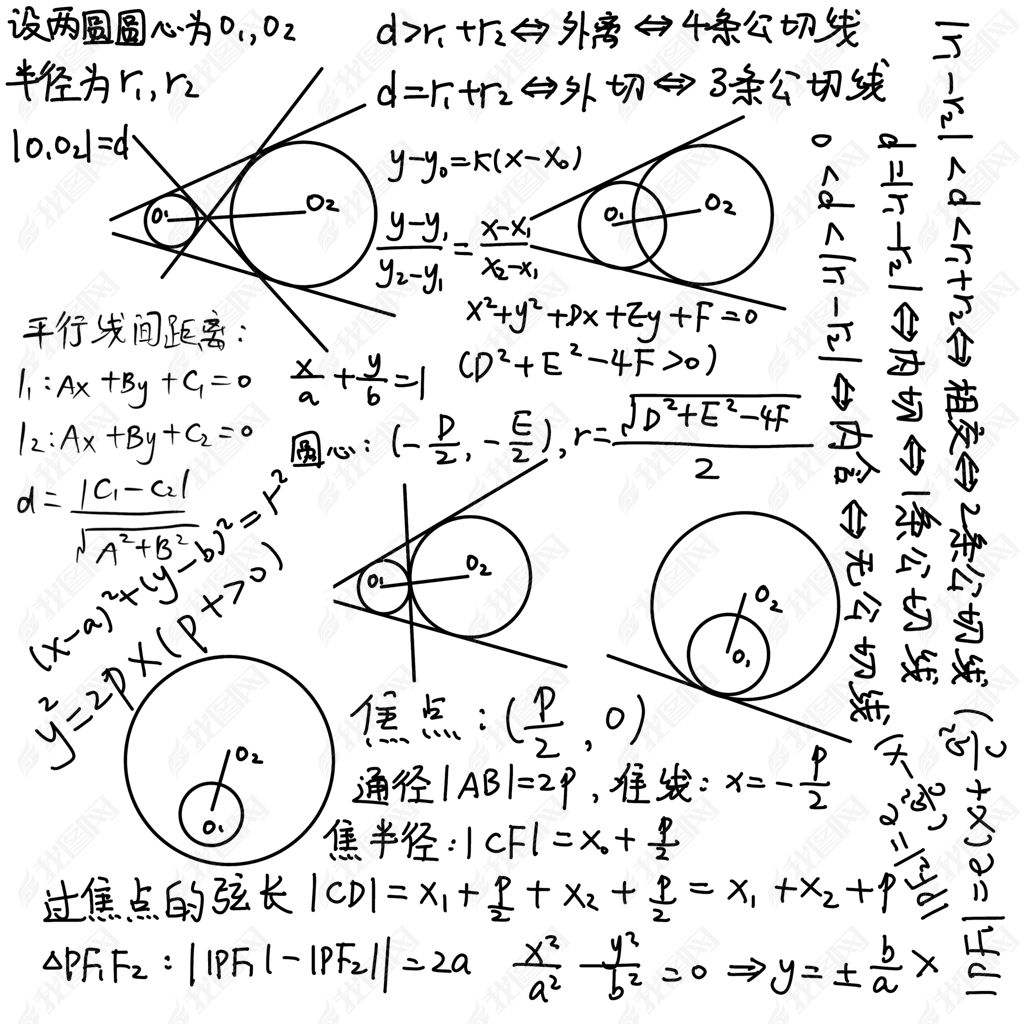 设两圆圆心为O₁,O₂
半径为r₁,r₂
|O₁O₂|=d
d>r₁+r₂⇔外离⇔4条公切线
d=r₁+r₂⇔外切⇔3条公切线
O₁ O₂
y-y₀=K(x-x₀)
(y-y₁)/(y₂-y₁)=(x-x₁)/(x₂-x₁)
O₁ O₂
x²+y²+Dx+Ey+F=0
(D²+E²-4F>0)
平行线间距离:
l₁:Ax+By+C₁=0
l₂:Ax+By+C₂=0
d=|C₁-C₂|/√(A²+B²)
x/a+y/b=1
圆心:(-D/2,-E/2),r=√(D²+E²-4F)/2
(x-a)²+(y-b)²=r²
y²=2px(p+>0)
O₁ O₂
O₂
O₁
O₂
O₁
焦点:(P/2,0)
通径|AB|=2P,准线:x=-P/2
焦半径:|CF|=x₀+P/2
过焦点的弦长|CD|=x₁+P/2+x₂+P/2=x₁+x₂+P
△PF₁F₂:||PF₁|-|PF₂||=2a
x²/a²-y²/b²=0⇒y=±b/a x
|r₁-r₂|<d<r₁+r₂⇔相交⇔2条公切线
d=|r₁-r₂|⇔内切⇔1条公切线
0<d<|r₁-r₂|⇔内含⇔无公切线